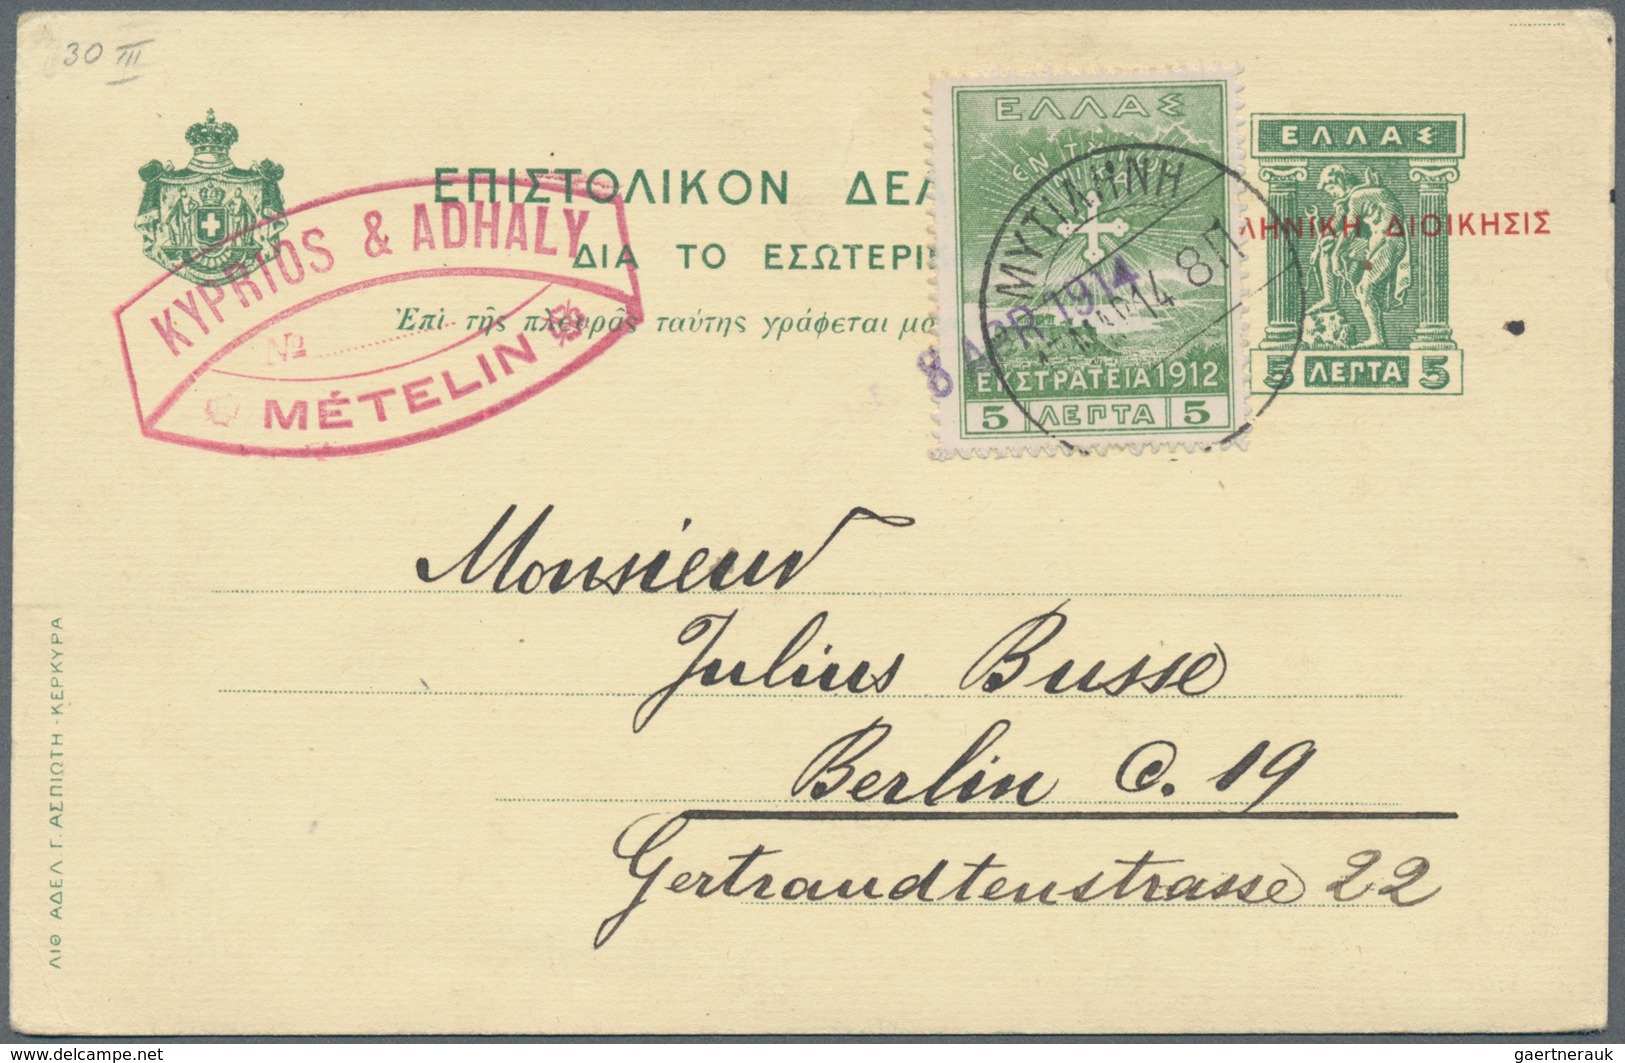 30 III
ΕΛΛΑΣ
ΕΝ ΤΟΥΤΩ
ΝΙΚΑ
ΕΚΣΤΡΑΤΕΙΑ 1912
5 ΛΕΠΤΑ 5
ΜΥΤΙΛΗΝΗ
14 8Π
8 APR 1914
ΕΛΛΑΣ
ΛΗΝΙΚΗ ΔΙΟΙΚΗΣΙΣ
5 ΛΕΠΤΑ 5
ΕΠΙΣΤΟΛΙΚΟΝ ΔΕΛ
ΔΙΑ ΤΟ ΕΣΩΤΕΡΙΚ
Ἐπὶ τῆς πλευρᾶς ταύτης γράφεται μο
KYPRIOS & ADHALY
No
MÉTELIN
Monsieur
Julius Busse
Berlin C. 19
Gertraudtenstrasse 22
ΛΙΘ ΑΔΕΛ Γ. ΑΣΠΙΩΤΗ - ΚΕΡΚΥΡΑ
www.delcampe.net
gaertnerauk